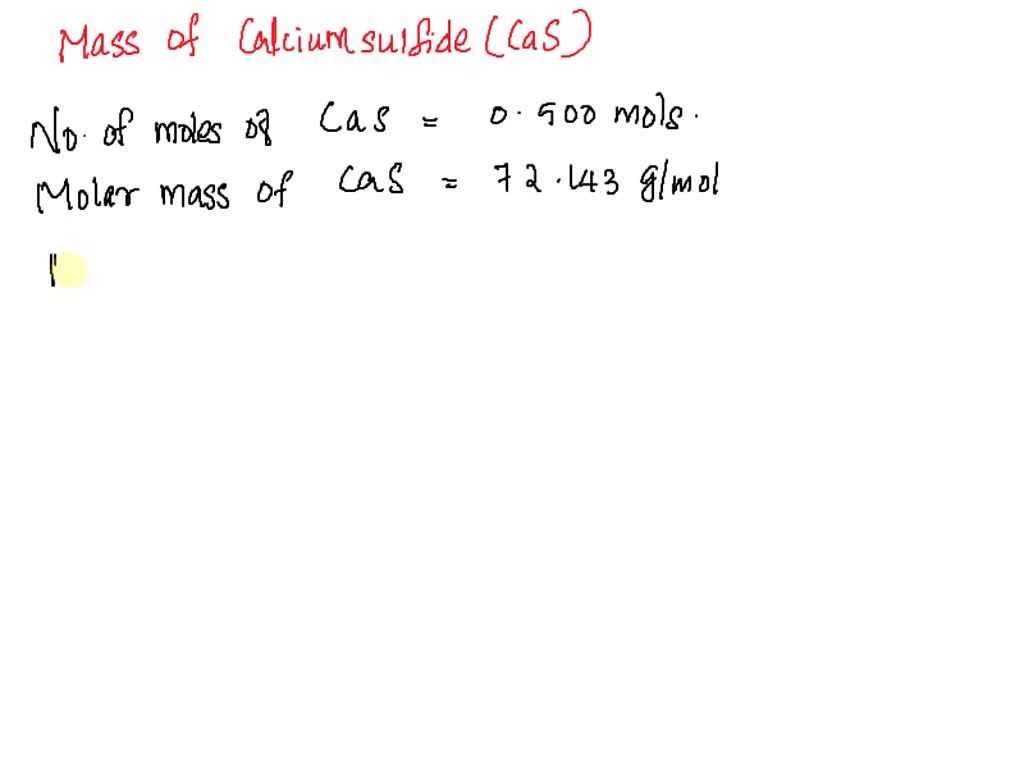 Mass of Calcium sulfide (CaS)
No. of moles of CaS = 0.500 mols.
Molar mass of CaS = 72.143 g/mol